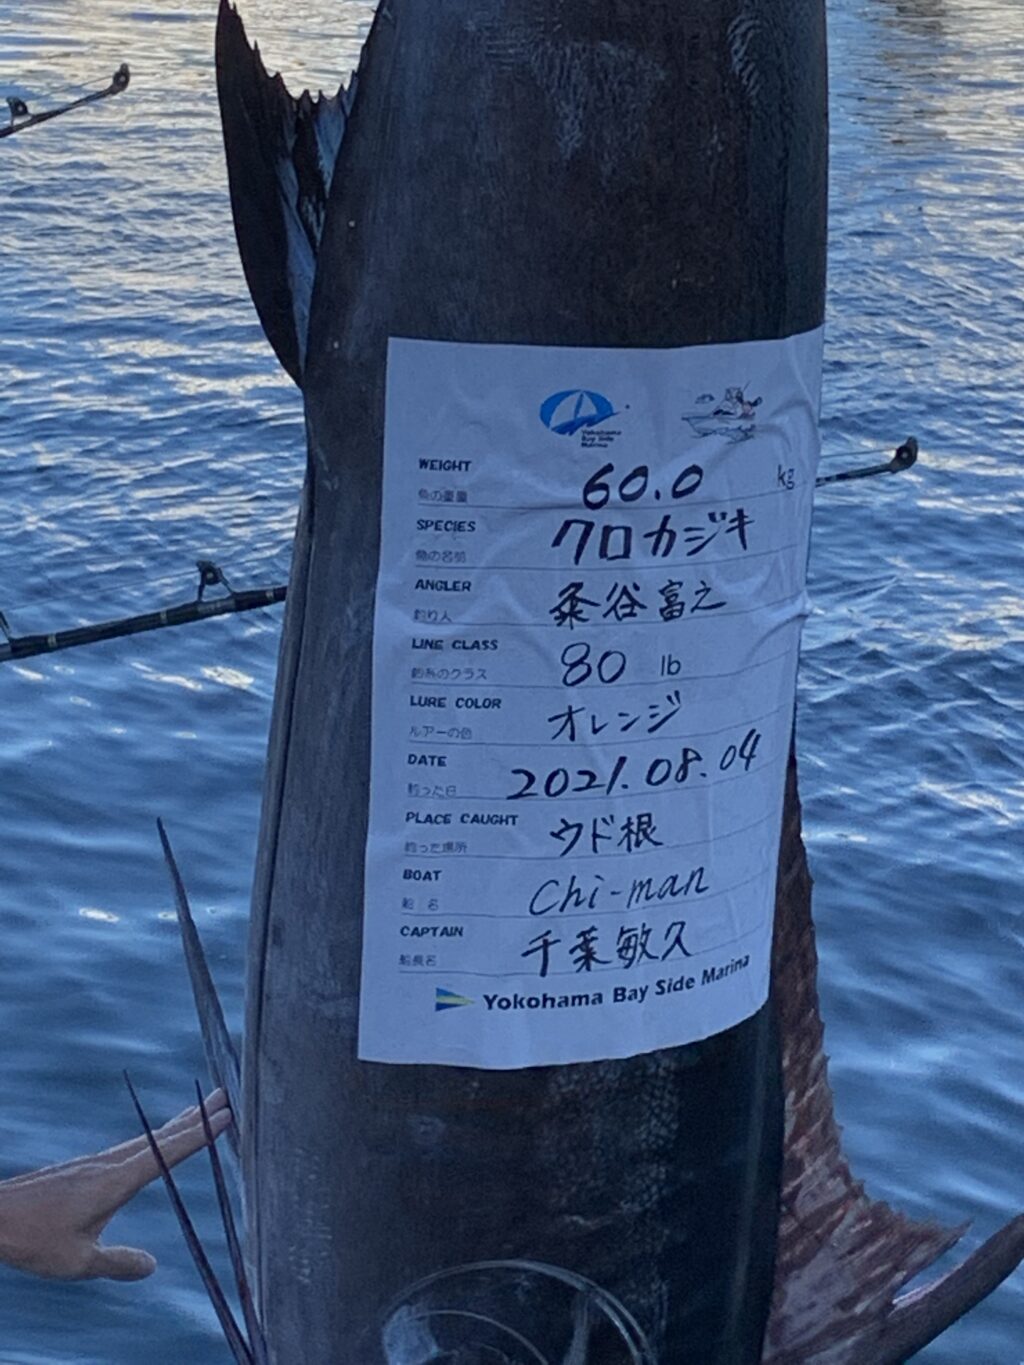 Yokohama
Bay Side
Marina
WEIGHT
魚の重量
60.0 kg
SPECIES
魚の名前
クロカジキ
ANGLER
釣り人
粂谷富之
LINE CLASS
釣糸のクラス
80 lb
LURE COLOR
ルアーの色
オレンジ
DATE
釣った日
2021.08.04
PLACE CAUGHT
釣った場所
ウド根
BOAT
船 名
Chi-man
CAPTAIN
船長名
千葉敏久
Yokohama Bay Side Marina